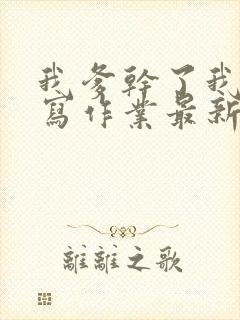 我爹幹了我
寫作業最新
離離之歌